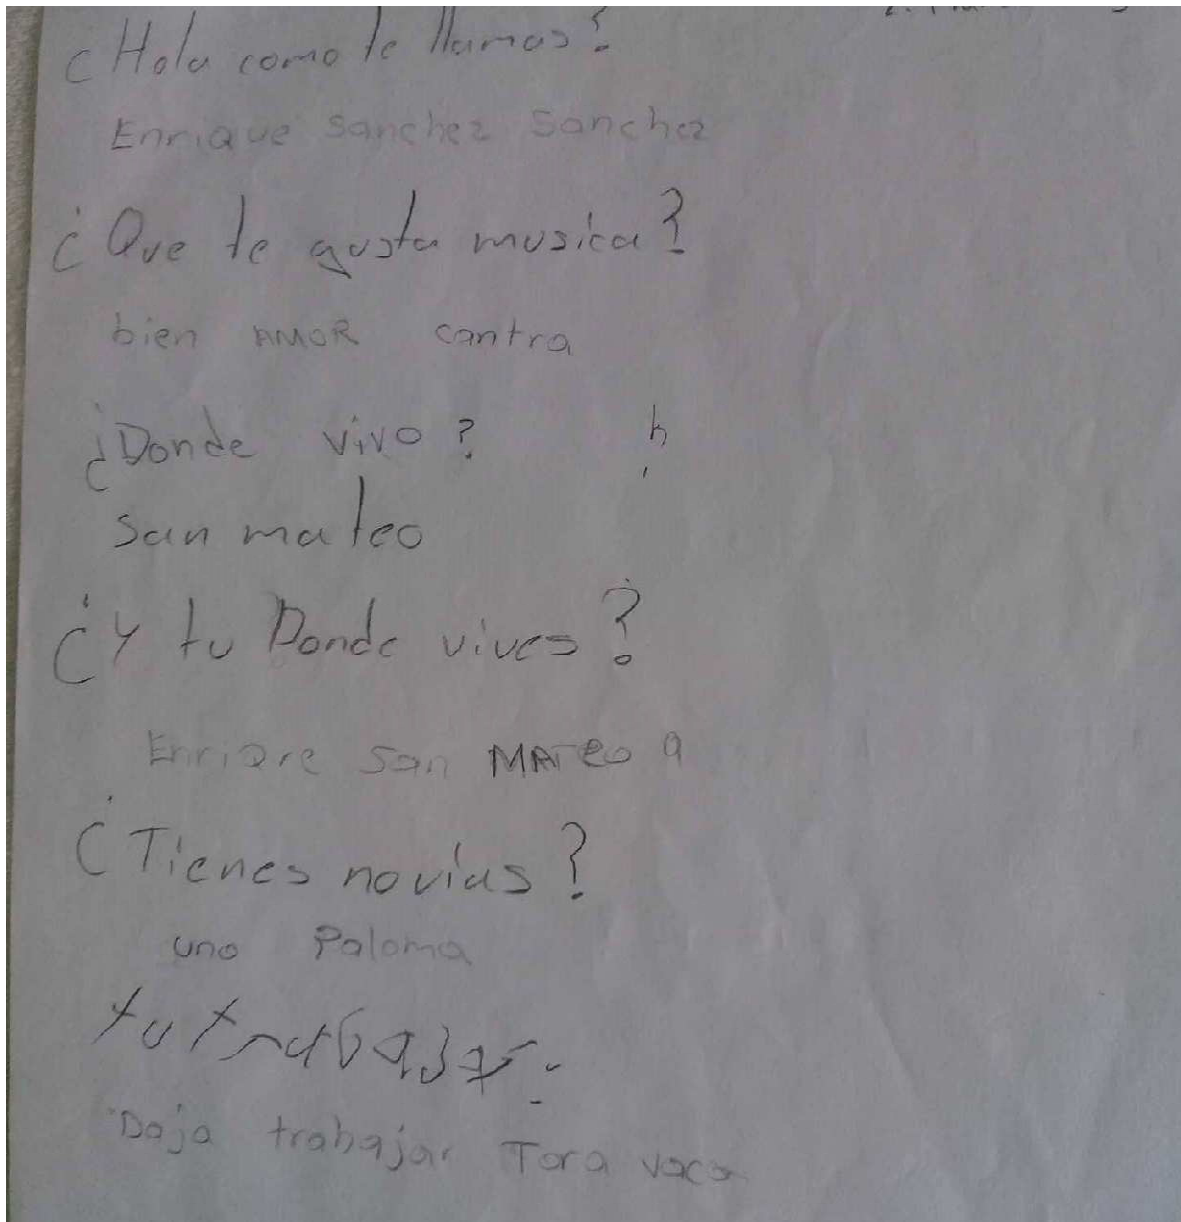 ¿Hola como te llamas?
Enrique Sanchez Sanchez
¿Que te gusta musica?
bien AMOR cantra
¿Donde vivo? h
San mateo
¿Y tu Donde vives?
Enriqre San MATEO 9
¿Tienes novias?
uno Paloma
tu trabajas
Daja trabajar Tora vaca